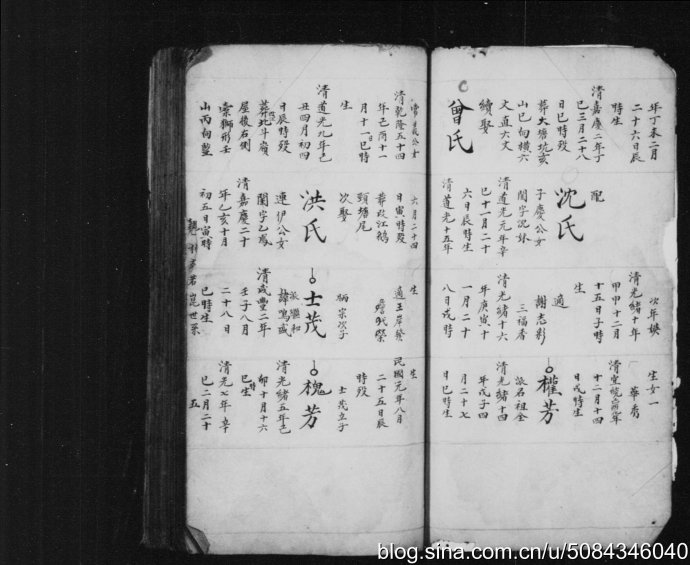 年丁未二月
二十六日辰
時生
清嘉慶二年子
巳三月二十八
日巳時歿
葬大塘坑亥
山巳向橫六
文直六文
續娶
曾氏
配
沈氏
子慶公女
閨字況妹
清道光元年辛
巳十一月二十
六日辰時生
清道光十五年
次年嫂
清光緒十年
甲申十二月
十五日子時
生
適
謝志彩
三福香
清光緒十六
年庚寅十
一月二十
八日戌時
生女一
華秀
清宣統年
十二月十四
日戌時生
權芳
派名祖全
清光緒十四
年戊子四
月二十七
日巳時生
常義公女
清乾隆五十四
年己酉十一
月十一日巳時
生
清道光九年己
丑四月初四
日辰時歿
葬北斗嶺
屋後右側
獅形壬
山丙向塟
六月二十四
日寅時歿
葬江鵝
頸塘尾
次娶
洪氏
連伊公女
閨字乙鳳
清嘉慶二十
年乙亥十月
初五日寅時
生
適王岸發
炳宗次子
士茂
派繼和
諱鳴盛
清咸豐二年
壬子八月
二十八日
巳時生
生
民國元年八月
二十五日辰
時歿
士茂立子
槐芳
清光緒五年己
卯十月十六
巳時生
清光七年辛
巳二月二十
世系
五
blog.sina.com.cn/u/5084346040